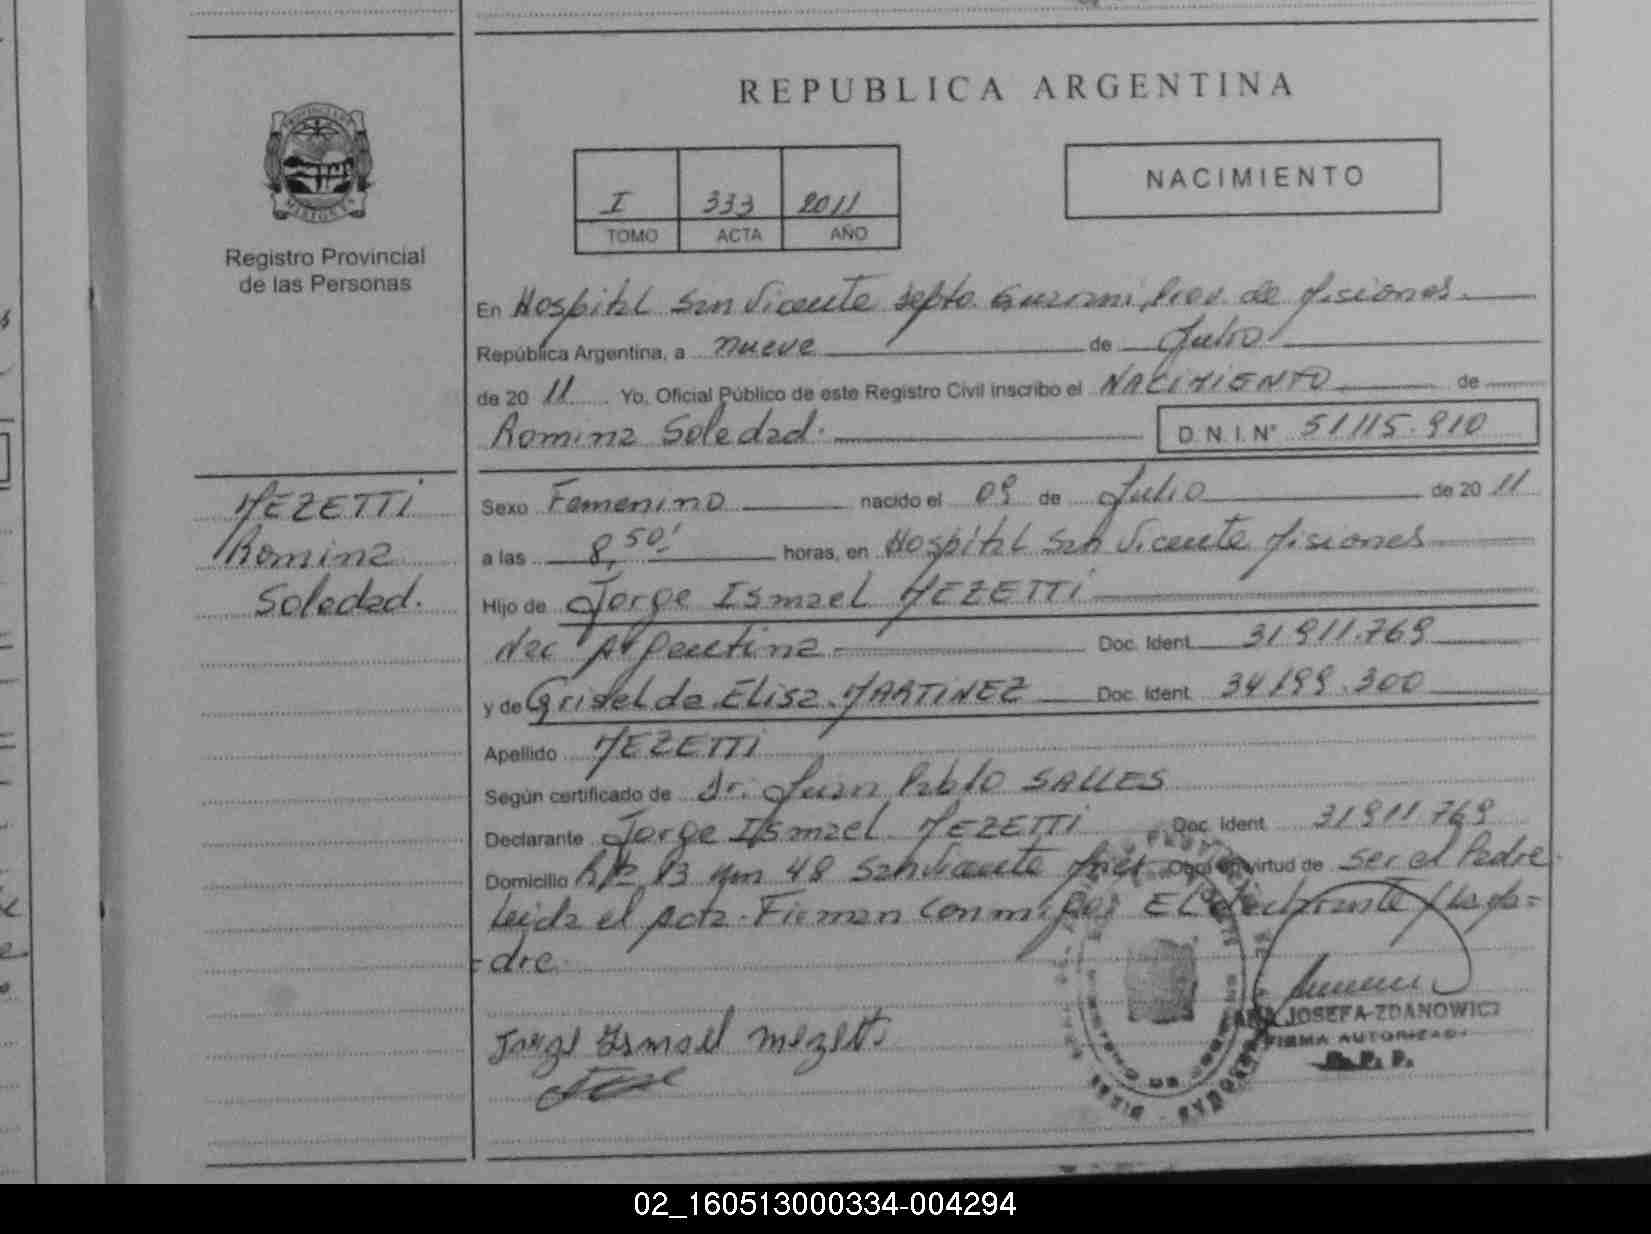 REPUBLICA ARGENTINA
I 333 2011
TOMO ACTA AÑO
NACIMIENTO
Registro Provincial
de las Personas
En Hospital San Vicente Depto. Guarani, Prov. de Misiones.
República Argentina, a nueve de Julio
de 20 11 Yo, Oficial Público de este Registro Civil inscribo el NACIMIENTO de
Romina Soledad. D.N.I.N° 51.115.910
MEZETTI
Romina
Soledad.
Sexo Femenino nacido el 09 de Julio de 20 11
a las 8,50' horas, en Hospital San Vicente Misiones
Hijo de Jorge Ismael MEZETTI
Nac Argentina Doc. Ident. 31911.769
y de Griselda Elisa MARTINEZ Doc. Ident. 34199.300
Apellido MEZETTI
Según certificado de Dr. Juan Pablo SALLES
Declarante Jorge Ismael MEZETTI Doc. Ident. 31911.769
Domicilio 13 Km 48 San Vicente Mnes Obra en virtud de ser el Padre
Leida el acta. Firman conmigo El declarante y la ma=
=dre.
Jorge Ismael Mezetti
JOSEFA ZDANOWICZ
FIRMA AUTORIZADA
R. P. P.
02_160513000334-004294